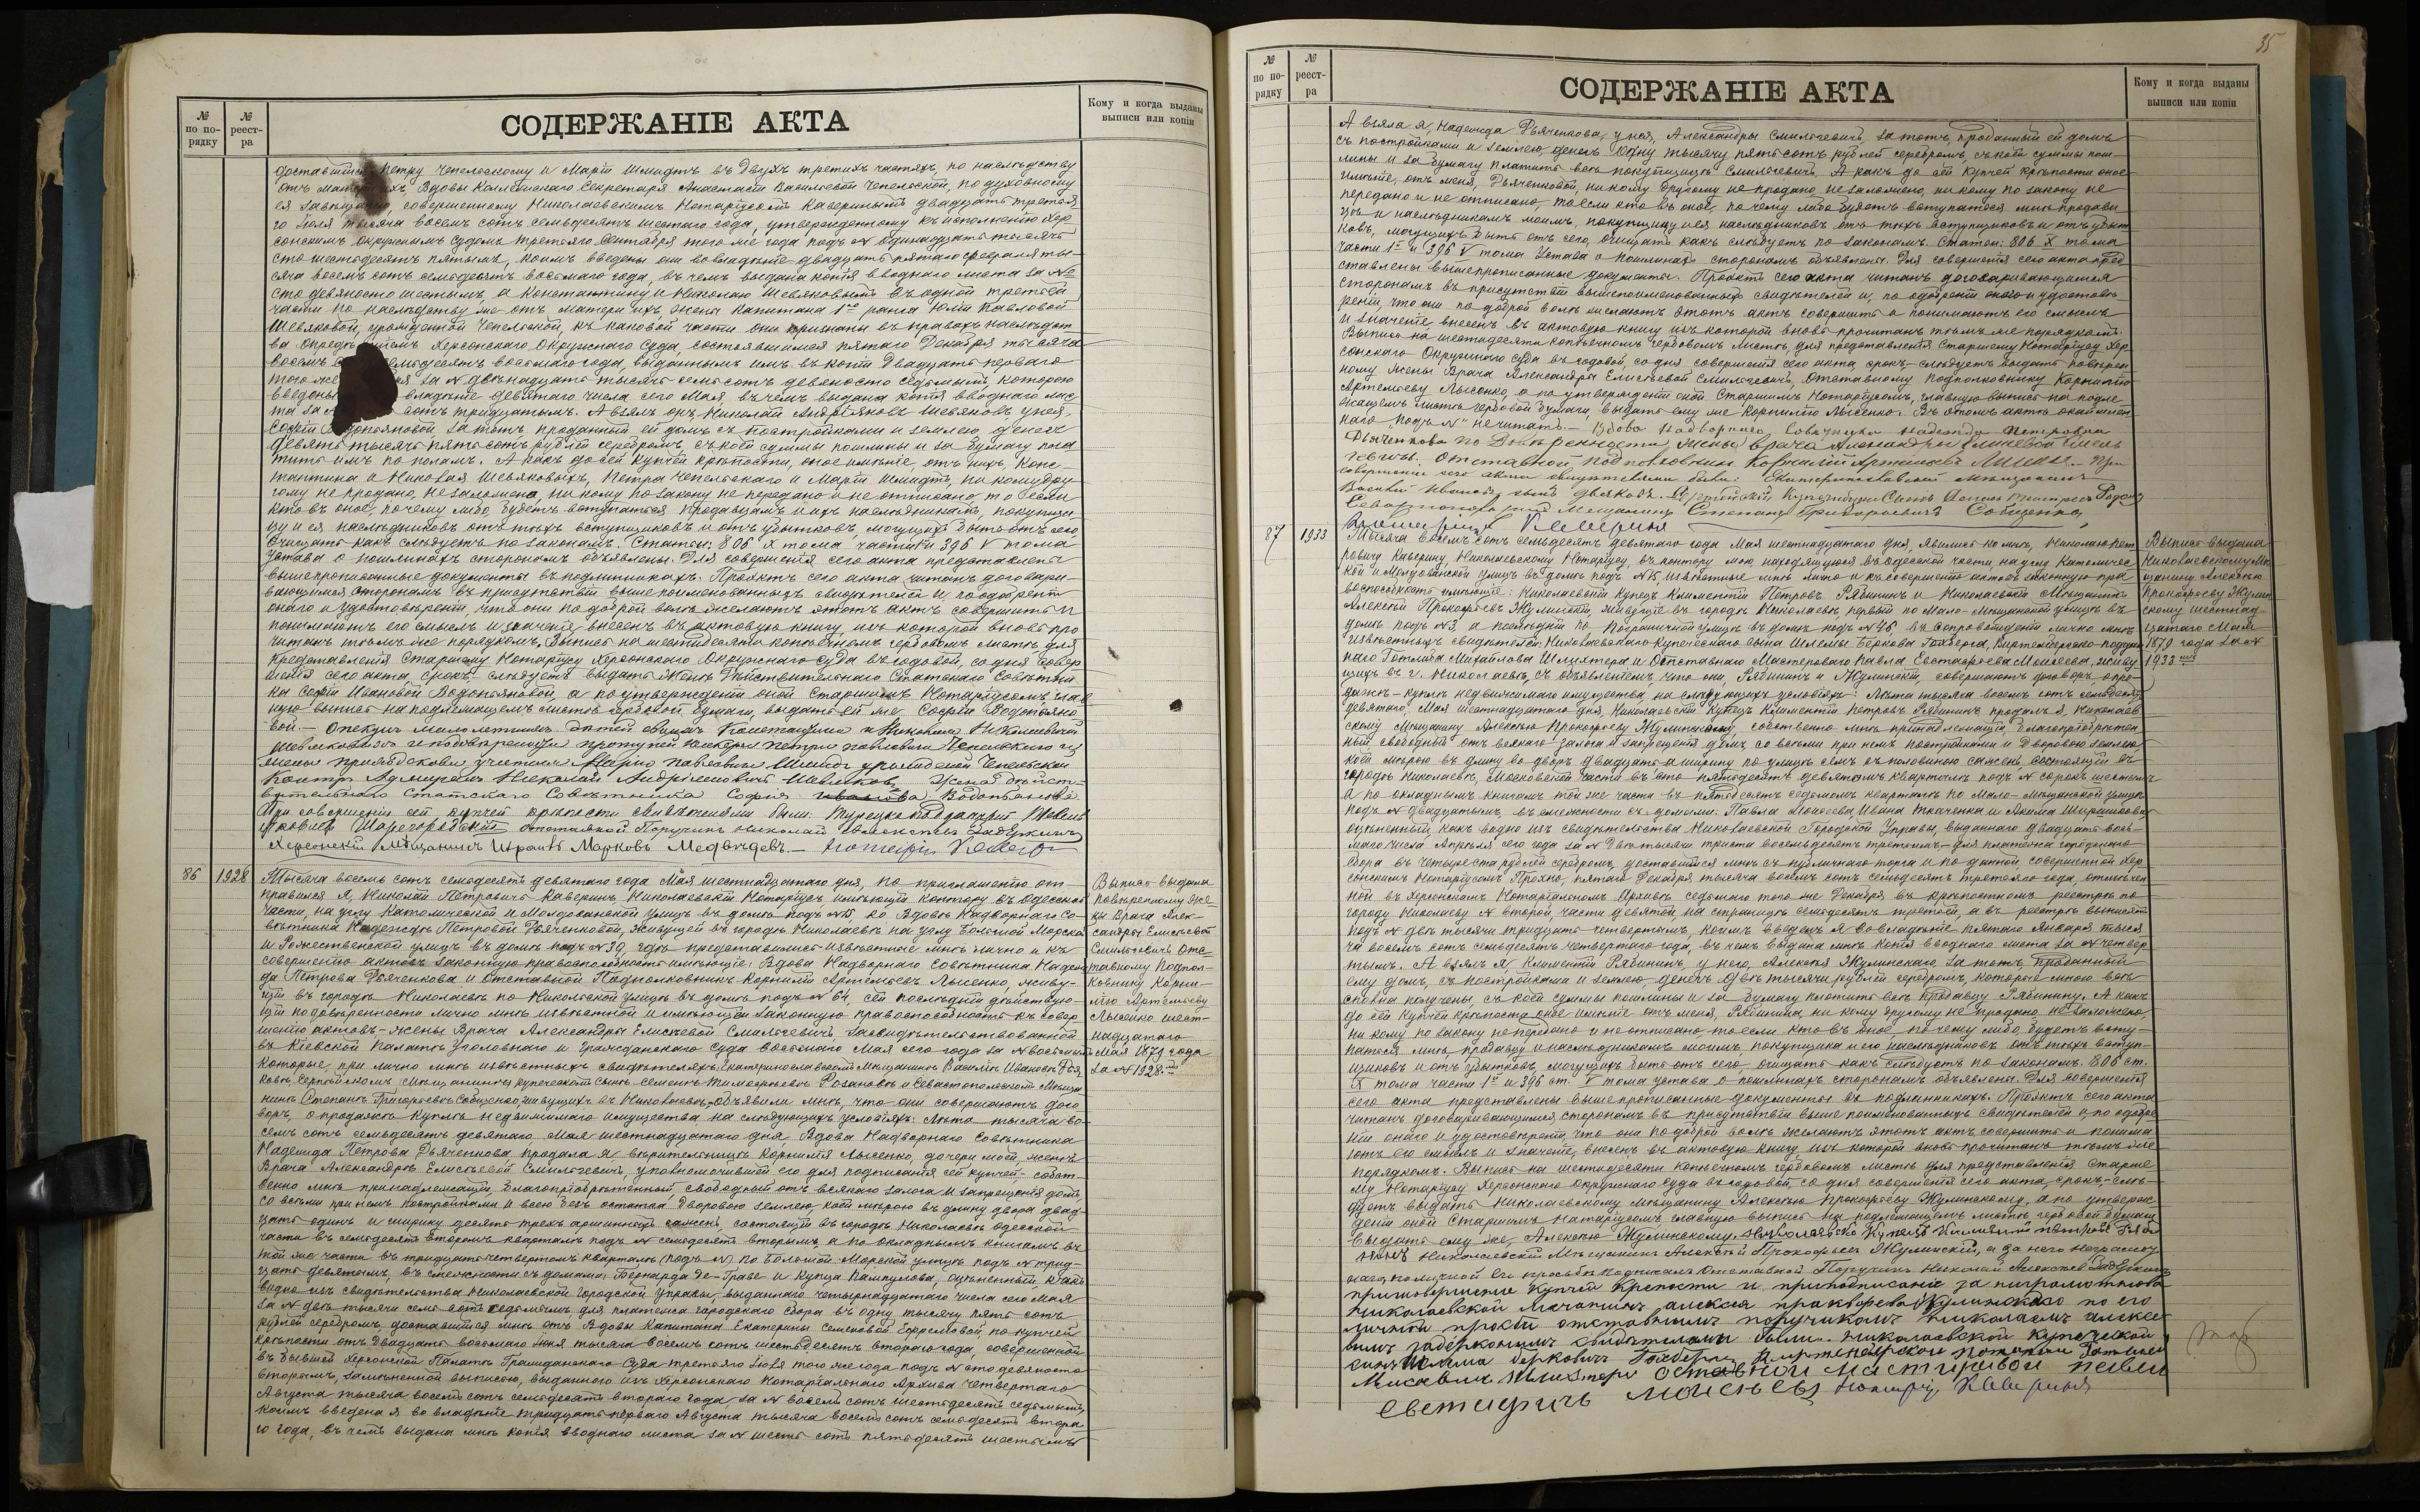 № по по-рядку
№ реест-ра
СОДЕРЖАНІЕ АКТА
Кому и когда выданы выписи или копіи
доставшійся Петру Чепельскому и Маріи Шмидтъ въ двухъ третихъ частяхъ, по наслѣдству
отъ матери ихъ Вдовы Коллежскаго Секретаря Анастасіи Васильевой Чепельской, по духовному
ея завѣщанію, совершенному Николаевскимъ Нотаріусомъ Каверинымъ двадцать третья-
го Іюля тысяча восемь сотъ семьдесятъ шестаго года, утвержденному къ исполненію Хер-
сонскимъ Окружнымъ Судомъ третьяго Сентября того же года подъ № одинадцать тысячъ
сто шестьдесятъ пятымъ, коимъ введены они во владѣніе двадцать пятаго Февраля ты-
сяча восемь сотъ семьдесятъ восьмаго года, въ чемъ выдана копія вводнаго листа за №
сто девяносто шестымъ, а Константину и Николаю Шевяковымъ въ одной третьей
части по наслѣдству же отъ матери ихъ, жены Капитана 1го ранга Юліи Павловой
Шевяковой, урожденной Чепельской, къ каковой части они признаны въ правахъ наслѣдст-
ва опредѣленіемъ Херсонскаго Окружнаго Суда, состоявшимся пятаго Декабря тысяча
восемь семьдесятъ восьмаго года, выданнымъ имъ въ копіи двадцать перваго
того же за № двѣнадцать тысячъ семь сотъ девяносто седьмымъ, которою
введены владѣніе девятаго числа сего Мая, въ чемъ выдана копія вводнаго лис-
та за № сотъ тридцатымъ. А взялъ онъ, Николай Андріяновъ Шевяковъ у нея,
Софіи Водопьяновой, за тотъ проданный ей домъ съ постройками и землею, денегъ
девять тысячъ пять сотъ рублей серебромъ, съ коей суммы пошлины и за бумагу пла-
тить имъ по поламъ. А какъ до сей купчей крѣпости, оное имѣніе, отъ нихъ, Конс-
тантина и Николая Шевяковыхъ, Петра Чепельскаго и Маріи Шмидтъ, ни кому дру-
гому не продано, не заложено, ни кому по закону не передано и не отписано, то если
кто въ оное, почему либо, будетъ вступаться продавцамъ и ихъ наслѣдникамъ, покупщи-
цу и ея наслѣдниковъ отъ тѣхъ вступщиковъ и отъ убытковъ, могущихъ быть отъ сего,
очищать какъ слѣдуетъ по законамъ. Статьи: 806 X тома части 1й и 396 V тома
Устава о пошлинахъ сторонамъ объявлены. Для совершенія сего акта представлены
вышепрописанные документы въ подлинникахъ. Проэктъ сего акта читанъ договари-
вающимся сторонамъ въ присутствіи выше поименованныхъ свидѣтелей и, по одобреніи
онаго и удостовѣреніи, что они по доброй волѣ желаютъ этотъ актъ совершить и
понимаютъ его смыслъ и значеніе, внесенъ въ актовую книгу, изъ которой вновь про-
читанъ тѣмъ же порядкомъ. Выпись на шестидесяти копѣечномъ гербовомъ листѣ для
представленія Старшему Нотаріусу Херсонскаго Окружнаго Суда въ годовой, со дня совер-
шенія сего акта, срокъ слѣдуетъ выдать женѣ Дѣйствительнаго Статскаго Совѣтни-
ка Софіи Ивановой Водопьяновой, а по утвержденіи оной Старшимъ Нотаріусомъ, глав-
ную выпись на подлежащемъ листѣ гербовой бумаги, выдать ей же Софіи Водопьяно-
вой. Опекунъ малолѣтнихъ дѣтей своихъ Константина и Николая Николаевичей
Шевяковыхъ и по довѣренности Петра Павловича Чепельскаго и
жены Маріи Павловны Шмидтъ урожденной Чепельской
Контръ Адмиралъ Николай Андріяновичъ Шевяковъ, Жена Дѣйст-
вительнаго Статскаго Совѣтника Софія Ивановна Водопьянова.
При совершеніи сей купчей крѣпости свидѣтелями были: Турецко подданый
Шаргородскій отставной Поручикъ Николай Алексѣевъ Задержинъ
Херсонскій Мѣщанинъ Израиль Марковъ Медвѣдевъ. — Нотаріусъ Каверинъ
86
1928
Тысяча восемь сотъ семьдесятъ девятаго года Мая шестнадцатаго дня, по приглашенію от-
правился я, Николай Петровичъ Каверинъ, Николаевскій Нотаріусъ имѣющій контору въ Одесской
части, на углу Католической и Молдованской улицъ въ домѣ подъ №15, ко Вдовѣ Надворнаго Со-
вѣтника Надеждѣ Петровой Дьяченковой, живущей въ городѣ Николаевѣ на углу Большой Морской
и Рожественской улицъ въ домѣ подъ №39, гдѣ представились извѣстные мнѣ лично и къ
совершенію актовъ законную правоспособность имѣющіе: Вдова Надворнаго Совѣтника Надеж-
да Петрова Дьяченкова и Отставной Подполковникъ Корнилій Артемьевъ Лысенко, живу-
щій въ городѣ Николаевѣ по Никольской улицѣ въ домѣ подъ № 64, сей послѣдній дѣйствую-
щій по довѣренности лично мнѣ извѣстной и имѣющей законную правоспособность къ совер-
шенію актовъ — жены Врача Александры Елисѣевой Смильгевичъ, засвидѣтельствованной
въ Кіевской Палатѣ Уголовнаго и Гражданскаго Суда восьмаго Мая сего года за № восьмымъ
которые, при лично мнѣ извѣстныхъ свидѣтеляхъ: Екатеринославскомъ Мѣщанинѣ Василіѣ Ивановѣ Дья-
ковѣ, купеческомъ сынѣ Семенѣ Тимофѣевѣ Розановѣ и Севастопольскомъ Мѣща-
нинѣ Степанѣ Григорьевѣ Собещенко, живущихъ въ Николаевѣ, объявили мнѣ, что они совершаютъ дого-
воръ, о продажѣ куплѣ недвижимаго имущества на слѣдующихъ условіяхъ: Лѣта тысяча во-
семь сотъ семьдесятъ девятаго, Мая шестнадцатаго дня, Вдова Надворнаго Совѣтника
Надежда Петрова Дьяченкова, продала я, вѣрительницѣ Корнилія Лысенко, дочери моей, женѣ
Врача Александрѣ Елисѣевой Смильгевичъ, уполномочившей его для подписанія сей купчей, собст-
венно мнѣ принадлежащій, благопріобрѣтенный, свободный отъ всякаго залога и запрещенія домъ
со всѣми при немъ постройками и всею безъ остатка дворовою землею, коей мѣрою въ длину двора двад-
цать одинъ и ширину десять трехъ аршинныхъ сажень, состоящій въ городѣ Николаевѣ Одесской
части въ семьдесятъ второмъ кварталѣ подъ № семьдесятъ вторымъ, а по окладнымъ книгамъ въ
той же части въ тридцать четвертомъ кварталѣ (подъ №) по Большой Морской улицѣ подъ № трид-
цать девятымъ, въ смежности съ домами: Бернарда Де-Граве и Купца Кампулова, оцѣненный какъ
видно изъ свидѣтельства Николаевской Городской Управы, выданнаго четырнадцатаго числа сего Мая
за № двѣ тысячи семь сотъ седьмымъ для платежа городскаго сбора въ одну тысячу пять сотъ
рублей серебромъ, доставшійся мнѣ отъ Вдовы Капитана Екатерины Семеновой Ефремовой, по купчей
крѣпости отъ двадцать восьмаго Іюня тысяча восемь сотъ шестьдесятъ втораго года, совершенной
въ бывшей Херсонской Палатѣ Гражданскаго Суда третьяго Іюля того же года подъ № сто девяносто
вторымъ, замѣненной выписью, выданною изъ Херсонскаго Нотаріальнаго Архива четвертаго
Августа тысяча восемь сотъ семьдесятъ втораго года, за № восемь сотъ шестьдесятъ седьмымъ,
коимъ введена я во владѣніе тридцать перваго Августа тысяча восемь сотъ семьдесятъ втора-
го года, въ чемъ выдана мнѣ копія вводнаго листа за № шесть сотъ пятьдесятъ шестымъ
Выпись выдана
повѣренному же-
ны Врача Алек-
сандры Елисѣевой
Смильгевичъ Отс-
тавному Подпол-
ковнику Корни-
лію Артемьеву
Лысенко шест-
надцатаго
Мая 1879 года
за № 1928.
35
№ по по-рядку
№ реест-ра
СОДЕРЖАНІЕ АКТА
Кому и когда выданы выписи или копіи
А взяла я, Надежда Дьяченкова, у нея, Александры Смильгевичъ, за тотъ, проданный ей домъ
съ постройками и землею, денегъ одну тысячу пять сотъ рублей серебромъ, съ коей суммы пош-
лины и за бумагу платить всѣ покупщицѣ Смильгевичъ. А какъ до сей купчей крѣпости оное
имѣніе, отъ меня, Дьяченковой, ни кому другому не продано, не заложено, ни кому по закону не
передано и не отписано, то если кто въ оное, почему либо будетъ вступаться мнѣ продави-
цѣ и наслѣдникамъ моимъ, покупщицу и ея наслѣдниковъ отъ тѣхъ вступщиковъ и отъ убыт-
ковъ, могущихъ быть отъ сего, очищать какъ слѣдуетъ по законамъ. Статьи: 806 X тома
части 1й и 396 V тома Устава о пошлинахъ сторонамъ объявлены. Для совершенія сего акта пред-
ставлены вышепрописанные документы. Проэктъ сего акта читанъ договаривающимся
сторонамъ въ присутствіи вышепоименованныхъ свидѣтелей и, по одобреніи онаго и удостовѣ-
реніи, что они по доброй волѣ желаютъ этотъ актъ совершить и понимаютъ его смыслъ
и значеніе, внесенъ въ актовую книгу изъ которой вновь прочитанъ тѣмъ же порядкомъ.
Выпись на шестидесяти копѣечномъ гербовомъ листѣ, для представленія Старшему Нотаріусу Хер-
сонскаго Окружнаго Суда въ годовой, со дня совершенія сего акта, срокъ — слѣдуетъ выдать повѣрен-
ному жены Врача Александры Елисѣевой Смильгевичъ, Отставному Подполковнику Корнилію
Артемьеву Лысенко, а по утвержденіи оной Старшимъ Нотаріусомъ, главную выпись на подле-
жащемъ листѣ гербовой бумаги, выдать ему же Корнилію Лысенко. Въ этомъ актѣ окаймлен-
наго „подъ №“ не читать. — Вдова Надворнаго Совѣтника Надежда Петровна
Дьяченкова по довѣренности жены врача Александры Елисѣевой Смиль-
гевичъ. Отставной подполковникъ Корнилій Артемьевъ Лысенко. — При
совершеніи сего акта свидѣтелями были: Екатеринославскій мѣщанинъ
Василій Ивановъ сынъ Дьяковъ. купеческій Сынъ
Севастопольскій Мещанинъ Степанъ Григорьевичъ Собещенко,
Нотаріусъ Каверинъ
87
1933
Тысяча восемь сотъ семьдесятъ девятаго года Мая шестнадцатаго дня, явились ко мнѣ, Николаю Пет-
ровичу Каверину, Николаевскому Нотаріусу, въ контору мою, находящуюся въ Одесской части, на углу Католичес-
кой и Молдованской улицъ въ домѣ подъ №15, извѣстные мнѣ лично и къ совершенію актовъ законную пра-
воспособность имѣющіе: Николаевскій Купецъ Климентій Петровъ Рябининъ и Николаевскій Мѣщанинъ
Алексѣй Прокофьевъ Жулинскій, живущіе въ городѣ Николаевѣ, первый по Мало-Мѣщанской улицѣ въ
домѣ подъ №3, а послѣдній по Пограничной улицѣ въ домѣ подъ №46, въ сопровожденіи лично мнѣ
извѣстныхъ свидѣтелей: Николаевскаго Купеческаго сына Шлемы Беркова Гохберга, Виртембергско-поддан-
наго Готлиба Михайлова Шлихтера и Отставнаго Мастероваго Павла Евстафьева Моисеева, живу-
щихъ въ г. Николаевѣ, съ объявленіемъ, что они, Рябининъ и Жулинскій, совершаютъ договоръ о про-
дажѣ-куплѣ недвижимаго имущества, на слѣдующихъ условіяхъ: Лѣта тысяча восемь сотъ семьдесятъ
девятаго, Мая шестнадцатаго дня, Николаевскій Купецъ Климентій Петровъ Рябининъ продалъ я, Николаев-
скому Мѣщанину Алексѣю Прокофьеву Жулинскому, собственно мнѣ принадлежащій, благопріобрѣтен-
ный свободный отъ всякаго залога и запрещенія домъ, со всѣми при немъ постройками и дворовою землею
коей мѣрою въ длину во дворъ двадцать а ширину по улицѣ семь съ половиною сажень, состоящій въ
городѣ Николаевѣ, Московской части въ сто пятьдесятъ девятомъ кварталѣ подъ № сорокъ шестымъ
а по окладнымъ книгамъ той же части въ пятьдесятъ седьмомъ кварталѣ по Мало-Мѣщанской улицѣ
подъ № двадцатымъ, въ смежности съ домами: Павла Моисеева, Ивана Ткаченка и Якима Ширшикова
оцѣненный какъ видно изъ свидѣтельства Николаевской Городской Управы, выданнаго двадцать вось-
маго числа Апрѣля сего года за № двѣ тысячи триста восемьдесятъ третьимъ, для платежа городскаго
сбора въ четыреста рублей серебромъ, доставшійся мнѣ съ публичнаго торга и по данной, совершенной Хер-
сонскимъ Нотаріусомъ Прохно, пятаго Декабря тысяча восемь сотъ семьдесятъ третьяго года, отмѣчен-
ной въ Херсонскомъ Нотаріальномъ Архивѣ седьмаго того же Декабря въ крѣпостномъ реестрѣ по
городу Николаеву № второй, части девятой, на страницѣ семьдесятъ третьей, а въ реестрѣ выписей
подъ № двѣ тысячи тридцать четвертымъ, коимъ введенъ я во владѣніе пятаго Января тыся-
ча восемь сотъ семьдесятъ четвертаго года, въ чемъ выдана мнѣ копія вводнаго листа за № четвер-
тымъ. А взялъ я, Климентій Рябининъ, у него, Алексѣя Жулинскаго, за тотъ проданный
ему домъ, съ постройками и землею, денегъ двѣ тысячи рублей серебромъ, которые мною всѣ
сполна получены, съ коей суммы пошлины и за бумагу платить всѣ продавцу Рябинину. А какъ
до сей купчей крѣпости оное имѣніе отъ меня, Рябинина, ни кому другому не продано, не заложено,
ни кому по закону не передано и не отписано, то если кто въ оное почему либо, будетъ всту-
паться мнѣ, продавцу и наслѣдникамъ моимъ, покупщика и его наслѣдниковъ отъ тѣхъ вступ-
щиковъ и отъ убытковъ, могущихъ быть отъ сего, очищать какъ слѣдуетъ по законамъ. 806 ст.
X тома части 1й и 396 ст. V тома устава о пошлинахъ сторонамъ объявлены. Для совершенія
сего акта представлены выше прописанные документы въ подлинникахъ. Проэктъ сего акта
читанъ договаривающимся сторонамъ въ присутствіи выше поименованныхъ свидѣтелей и по одобре-
ніи онаго и удостовѣреніи, что они по доброй волѣ желаютъ этотъ актъ совершить и понима-
ютъ его смыслъ и значеніе, внесенъ въ актовую книгу, изъ которой вновь прочитанъ тѣмъ же
порядкомъ. Выпись на шестидесяти копѣечномъ гербовомъ листѣ для представленія Старше-
му Нотаріусу Херсонскаго Окружнаго Суда въ годовой, со дня совершенія сего акта, срокъ — слѣ-
дуетъ выдать Николаевскому мѣщанину Алексѣю Прокофьеву Жулинскому, а по утверж-
деніи оной Старшимъ Нотаріусомъ, главную выпись на подлежащемъ листѣ гербовой бумаги
выдать ему же, Алексѣю Жулинскому. Николаевскій Купецъ Климентій Петровъ Ряби-
нинъ Николаевскій Мѣщанинъ Алексѣй Прокофьевъ Жулинскій, а за него неграмот-
наго, по личной его просьбѣ подписался Отставной Поручикъ Николай Алексѣевъ Задержинъ
при совершеніи купчей крепости и приподписаніе за ниграмотнова
николаевской мечанинъ алексея пракофева жулинскаго по его
личной прозби отставнымъ поручикомъ николаемъ алексе-
вымъ задержинымъ свидетелями были. николаевской купеческой
синъ Шлема беркович Гохберг
Михавлъ Шлихтеръ оставной мастировой павелъ
евстафичъ моисѣевъ Нотаріусъ Каверинъ
Выпись выдана
Николаевскому Мѣ-
щанину Алексѣю
Прокофьеву Жулин-
скому шестнад-
цатаго Мая
1879 года за №
1933